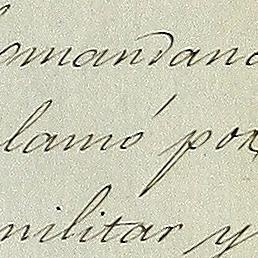 omandand
lamó por
militar y